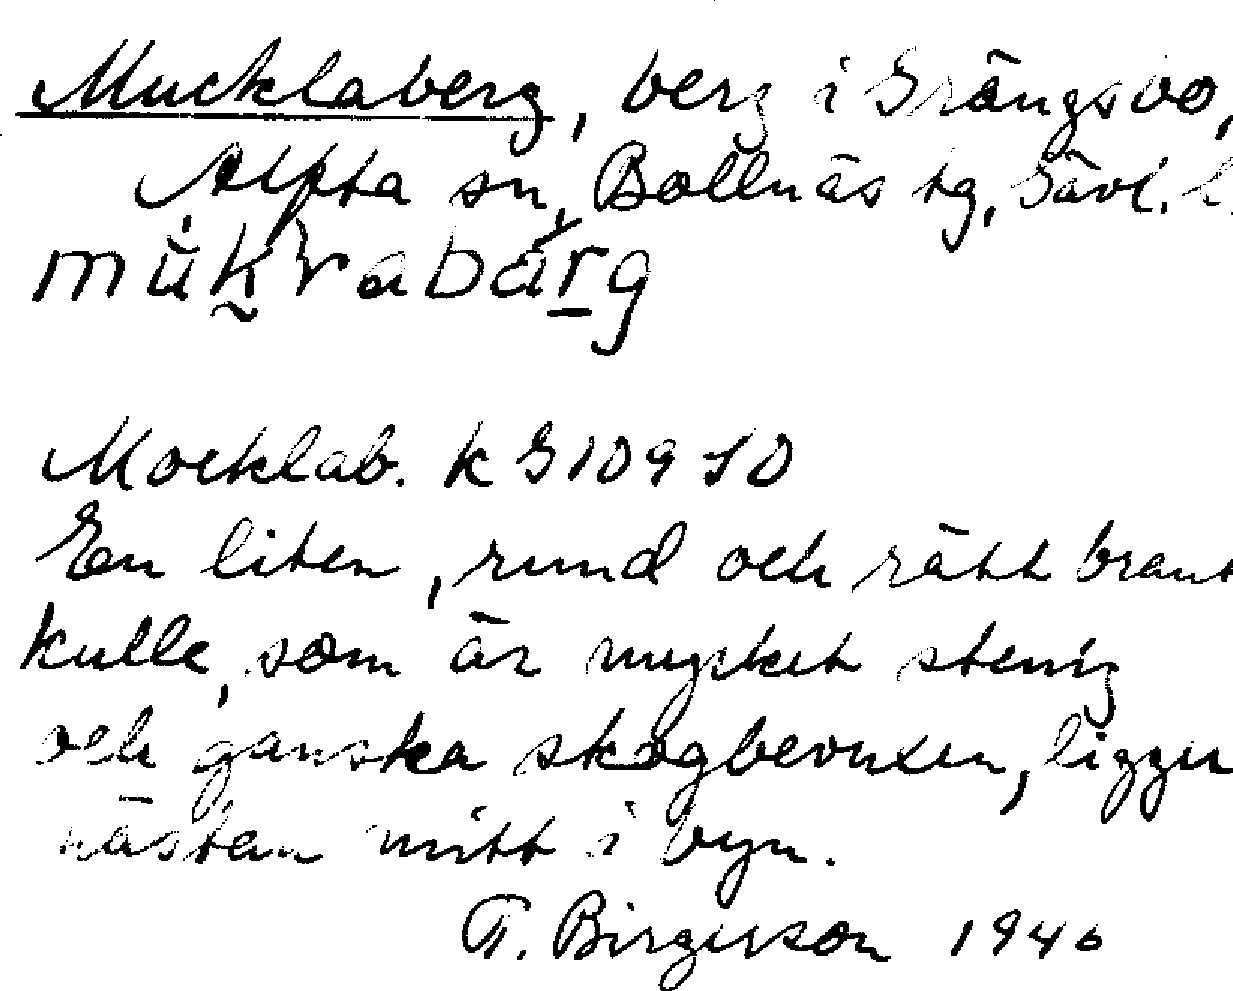 Mucklaberg, berg i Grängsbo,
Alfta sn, Bollnäs tg, Gävl. l.
mukrabärg
Mocklab. k G 109 10
En liten, rund och rätt brant
kulle, som är mycket stenig
och ganska skogbevuxen, ligger
nästan mitt i byn.
T. Birgerson 1940